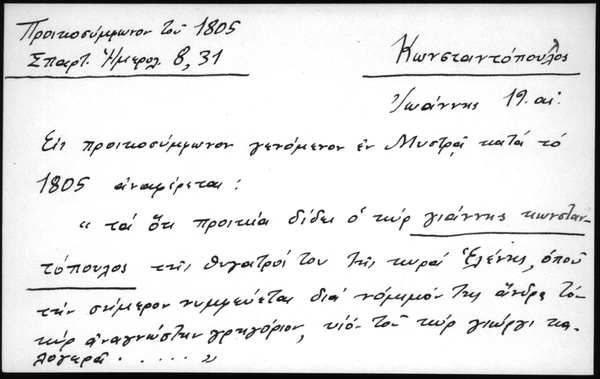 Προικοσύμφωνον τοῦ 1805
Σπαρτ. Ἡμερολ. 8, 31
Κωνσταντόπουλος
Ἰωάννης 19. αἰ.
Εἰς προικοσύμφωνον γενόμενον ἐν Μυστρᾷ κατά τό
1805 ἀναφέρεται:
" τά ὅτι προικιά δίδει ὁ κύρ γιάννης κωνσταν-
τόπουλος τῆς θυγατρός του τῆς κυράς Ἑλένης, ὁποῦ
τήν σήμερον νυμφεύεται διά νόμιμόν της ἄνδρα τόν
κύρ ἀναγνώστην γρηγόριον, υἱόν τοῦ κύρ γιώργι κα-
λογερᾶ . . . . . "